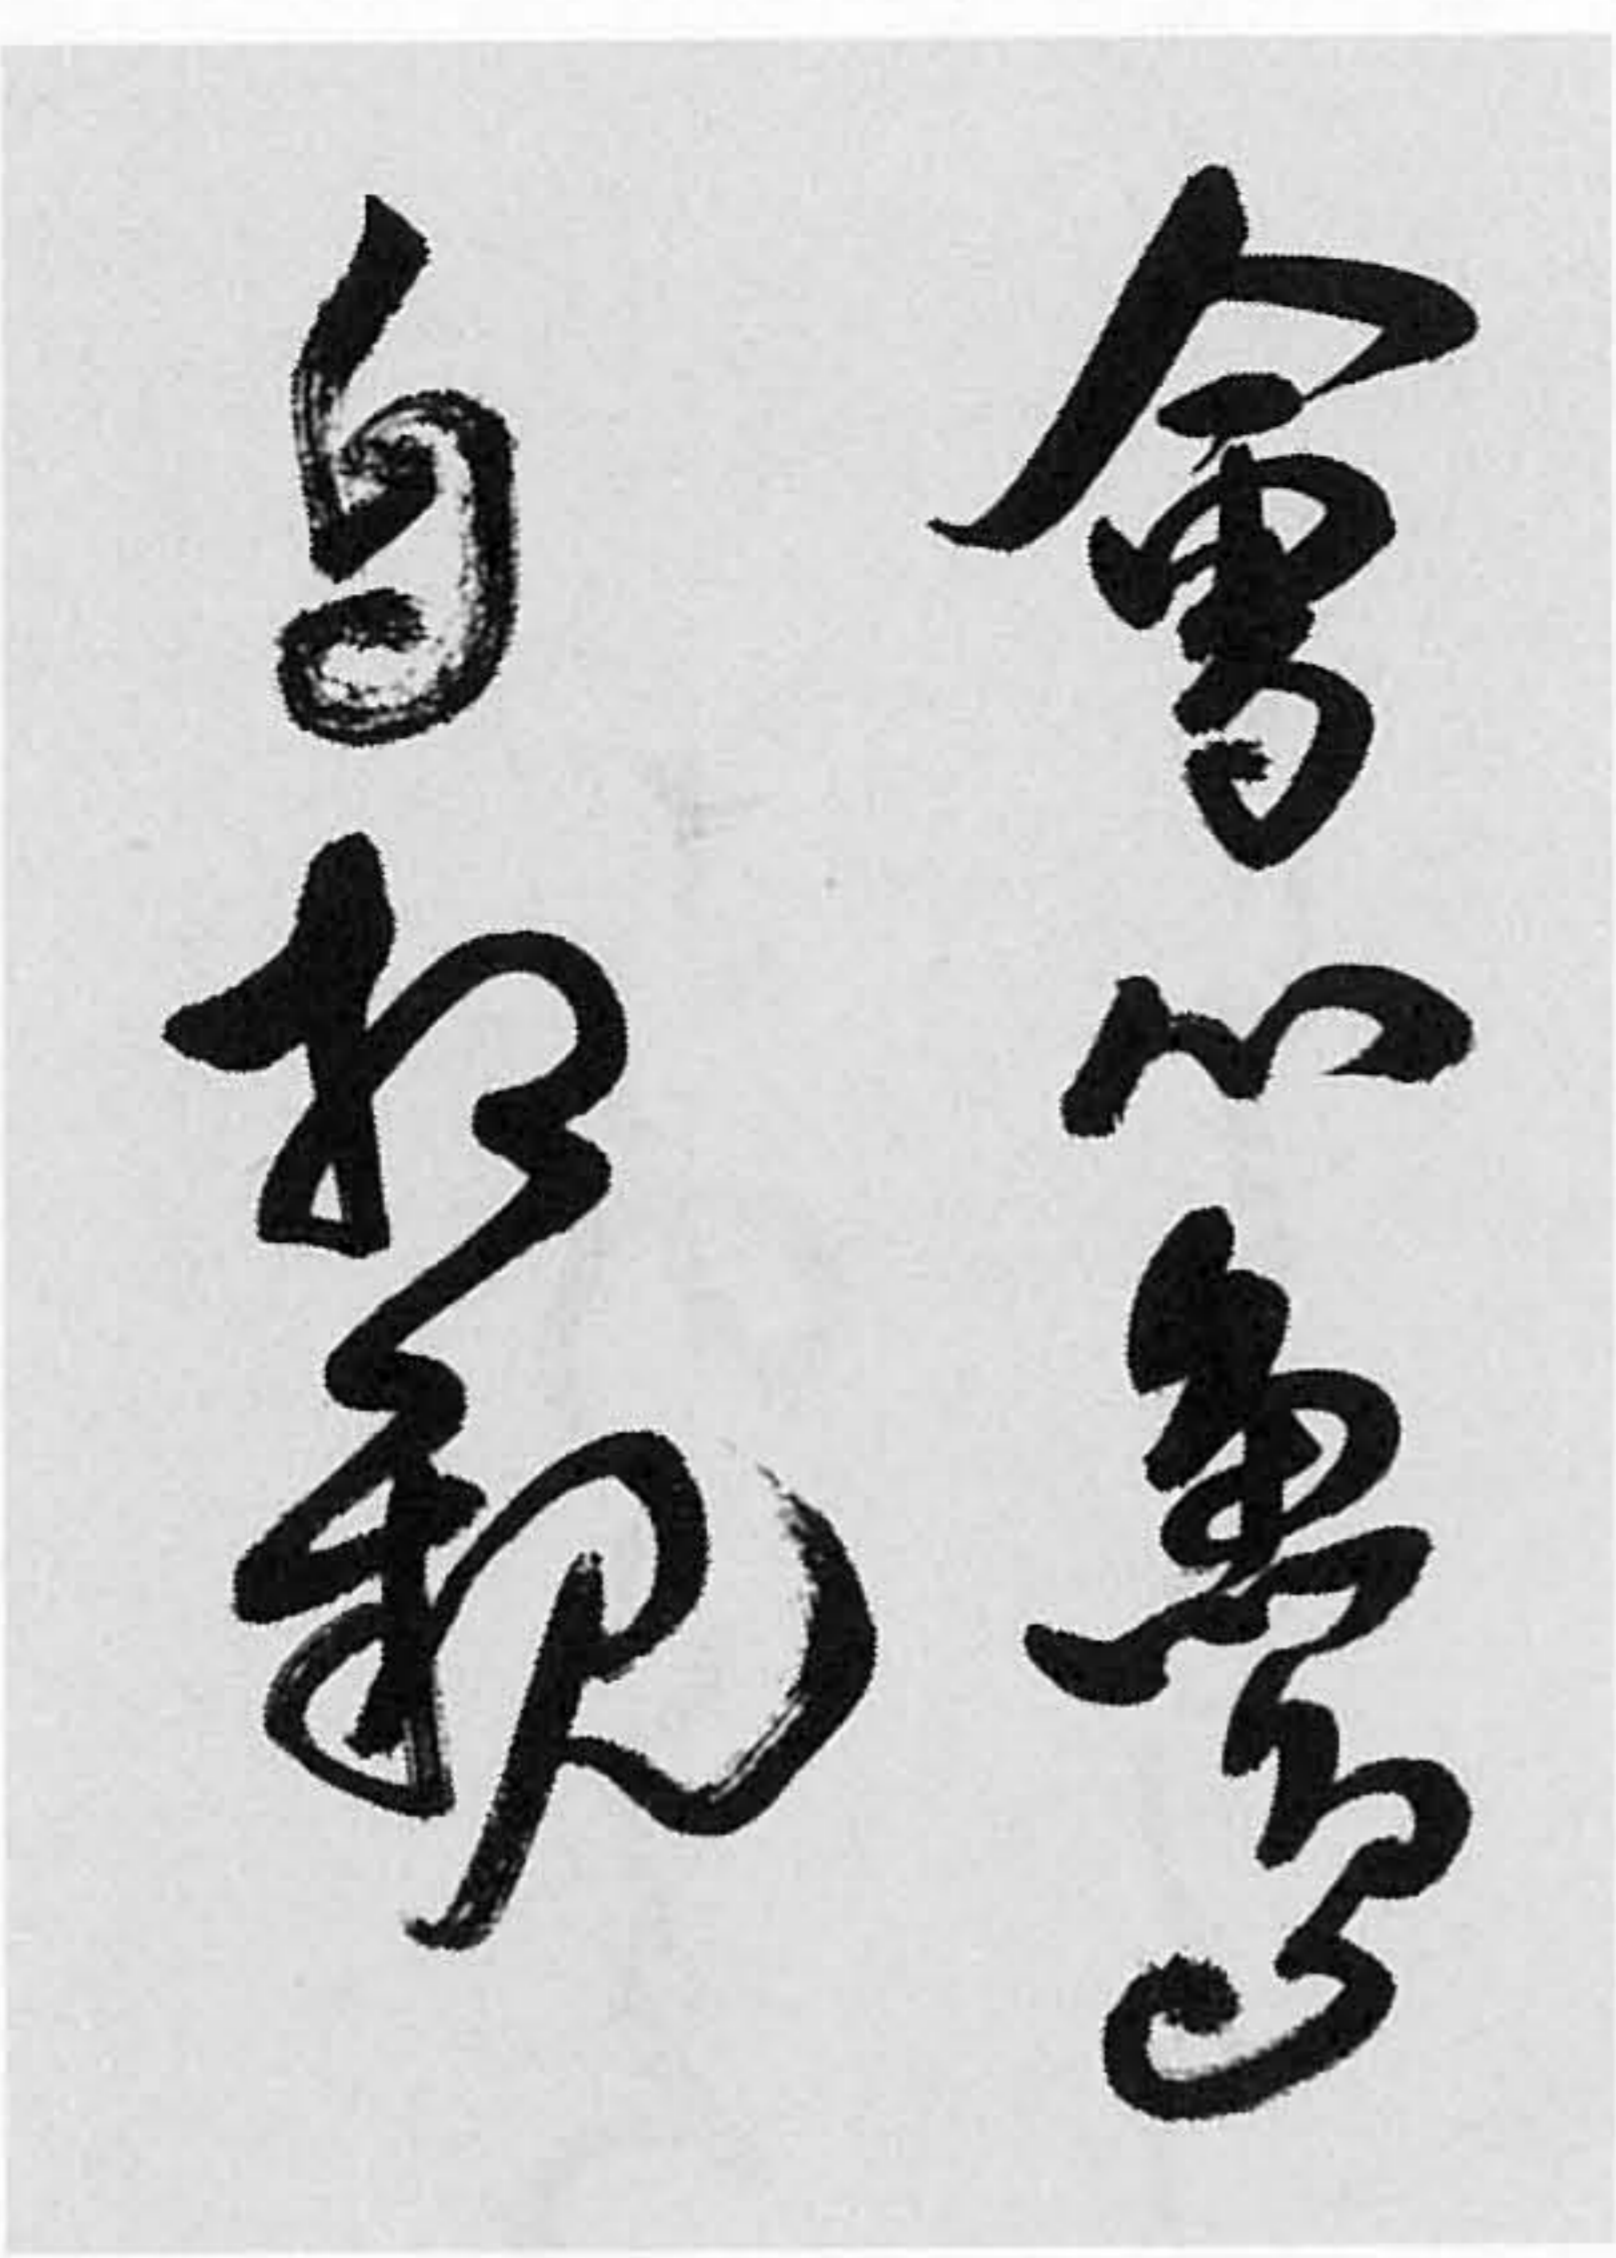 會心魚鳥
自相親